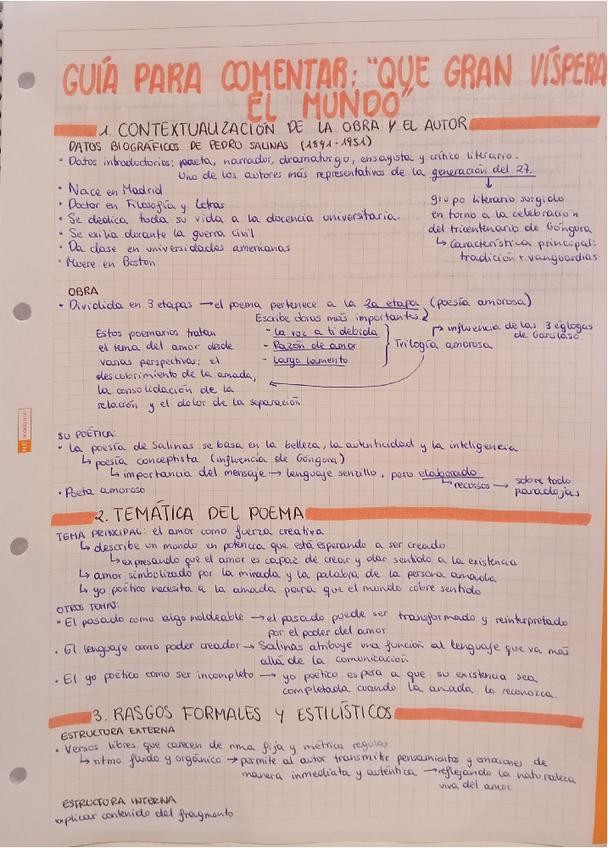 GUÍA PARA COMENTAR: "QUE GRAN VÍSPERA
EL MUNDO"
1. CONTEXTUALIZACIÓN DE LA OBRA Y EL AUTOR
DATOS BIOGRÁFICOS DE PEDRO SALINAS (1891-1951)
• Datos introductorios: poeta, narrador, dramaturgo, ensayista y crítico literario.
Uno de los autores más representativos de la generación del 27.
• Nace en Madrid
• Doctor en Filosofía y Letras
• Se dedica toda su vida a la docencia universitaria.
• Se exilia durante la guerra civil
• Da clase en universidades americanas
• Muere en Boston
↓
grupo literario surgido
en torno a la celebración
del tricentenario de Góngora
↳ Característica principal:
tradición + vanguardias
OBRA
• Dividida en 3 etapas → el poema pertenece a la 2a etapa (poesía amorosa)
Escribe obras más importantes
- La voz a ti debida
- Razón de amor
- Largo lamento
Trilogía amorosa
→ influencia de las 3 églogas
de Garcilaso.
Estos poemarios tratan
el tema del amor desde
varias perspectivas: el
descubrimiento de la amada,
la consolidación de la
relación y el dolor de la separación
SU POÉTICA:
• La poesía de Salinas se basa en la belleza, la autenticidad y la inteligencia
↳ poesía conceptista (influencia de Góngora)
↳ importancia del mensaje → lenguaje sencillo, pero elaborado
↳ recursos → sobre todo
paradojas
• Poeta amoroso
2. TEMÁTICA DEL POEMA
TEMA PRINCIPAL: el amor como fuerza creativa
↳ describe un mundo en potencia que está esperando a ser creado
↳ expresando que el amor es capaz de crear y dar sentido a la existencia
↳ amor simbolizado por la mirada y la palabra de la persona amada
↳ yo poético necesita a la amada para que el mundo cobre sentido
OTROS TEMAS:
• El pasado como algo moldeable → el pasado puede ser transformado y reinterpretado
por el poder del amor
• El lenguaje como poder creador → Salinas atribuye una función al lenguaje que va más
allá de la comunicación
• El yo poético como ser incompleto → yo poético espera a que su existencia sea
completada cuando la amada lo reconozca.
3. RASGOS FORMALES Y ESTILÍSTICOS
ESTRUCTURA EXTERNA
• Versos libres que carecen de rima fija y métrica regular
↳ ritmo fluido y orgánico → permite al autor transmitir pensamientos y emociones de
manera inmediata y auténtica → reflejando la naturaleza
viva del amor.
ESTRUCTURA INTERNA
explicar contenido del fragmento